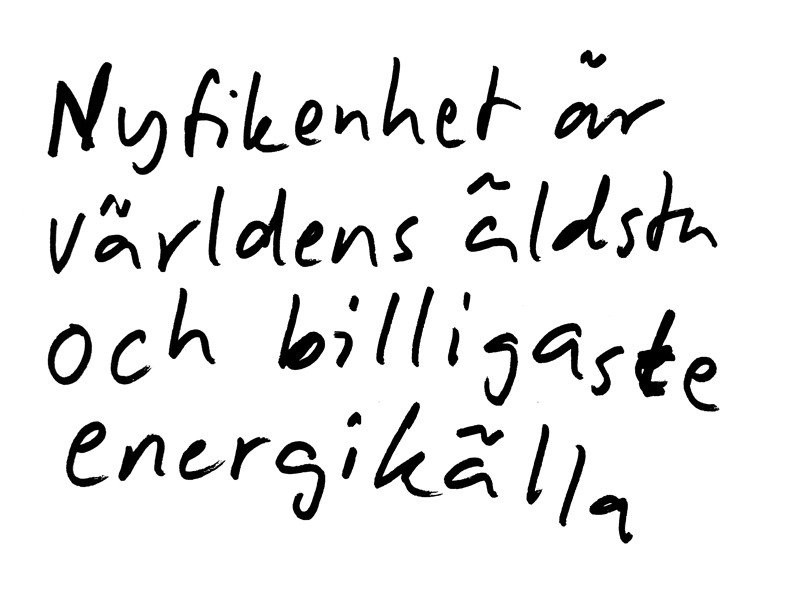 Nyfikenhet är
världens äldsta
och billigaste
energikälla